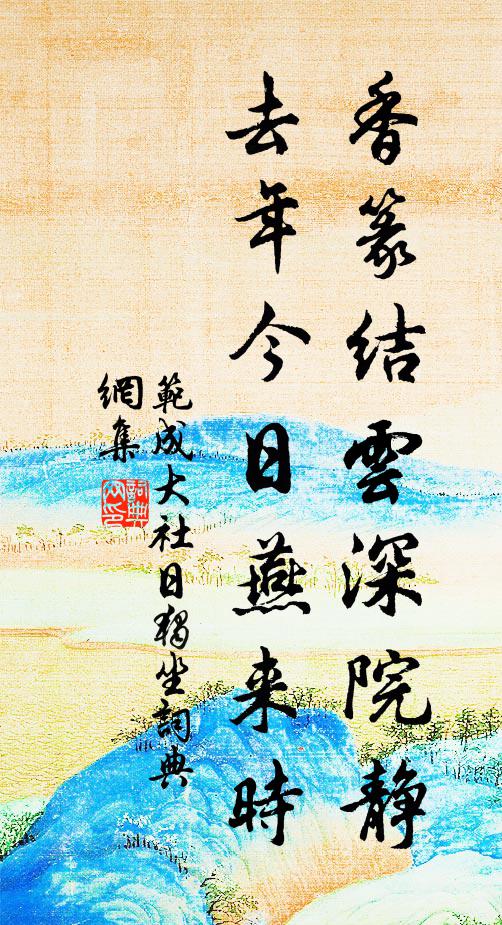 香篆結雲深院静
去年今日燕来時
範成大社日獨坐詞典
網集
詞典